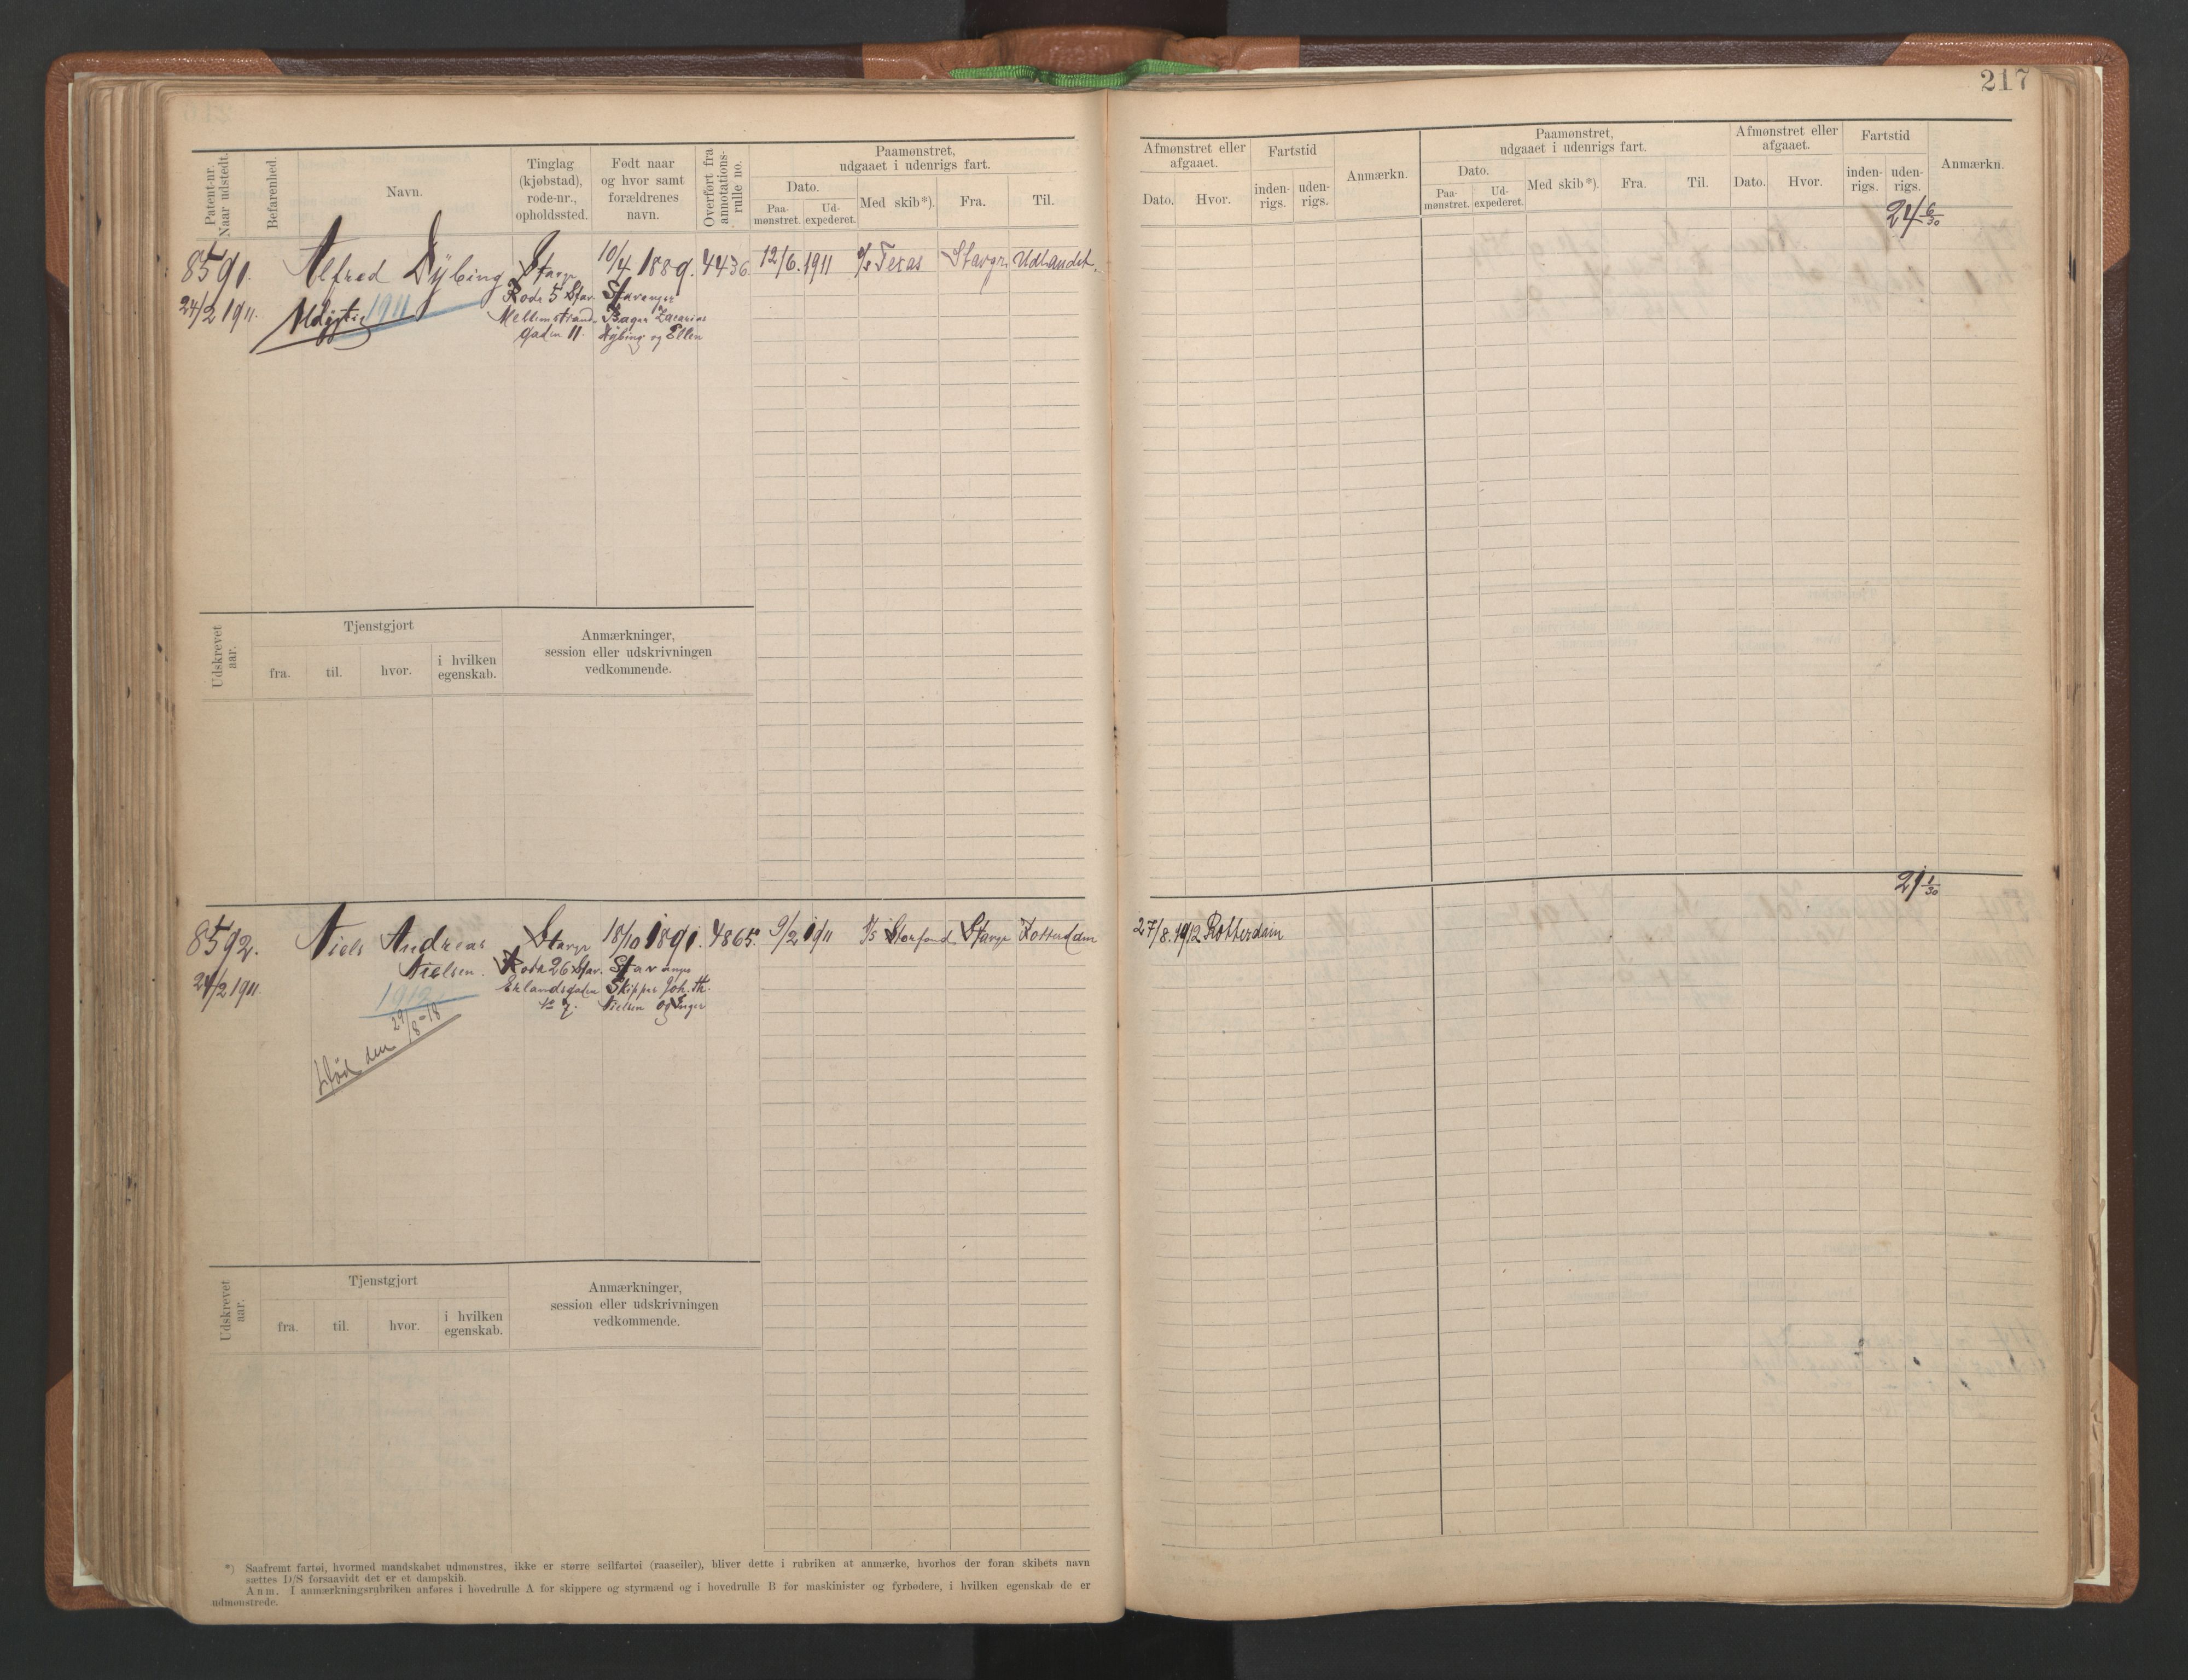 217
Patent-nr.
Naar udstedt.
Befarenhed.
Navn.
Tinglag
(kjøbstad),
rode-nr.,
opholdssted.
Født naar
og hvor samt
forældrenes
navn.
Overført fra
annotations-
rulle no.
Paamønstret,
udgaaet i udenrigs fart.
Dato.
Paa-
mønstret.
Ud-
expederet.
Med skib*).
Fra.
Til.
Afmønstret eller
afgaaet.
Dato.
Hvor.
Fartstid
inden-
rigs.
uden-
rigs.
Anmærkn.
Paamønstret,
udgaaet i udenrigs fart.
Dato.
Paa-
mønstret.
Ud-
expederet.
Med skib*).
Fra.
Til.
Afmønstret eller
afgaaet.
Dato.
Hvor.
Fartstid
inden-
rigs.
uden-
rigs.
Anmærkn.
24 6/30
8591.
24/2 1911.
Alfred Dybing
1911
Stavgr
Rode 5 Stav.
Mellemstrand-
gaden 11.
10/4 1889.
Stavanger
Zacarias
Dybing og Ellen
4436
12/6. 1911
Texas
Stavgr.
Udlandet.
Udskrevet
aar.
Tjenstgjort
fra.
til.
hvor.
i hvilken
egenskab.
Anmærkninger,
session eller udskrivningen
vedkommende.
21 1/30
8592.
24/2 1911.
Niels Andreas
Nielsen.
1912
Død den 29/8-18
Stavgr
Rode 26 Stav.
Erlandsgaden
no 7.
18/10 1891.
Stavanger
Skipper Joh. Th.
Nielsen og Inger
4865.
9/2 1911
Stavgr
Rotterdam
27/8. 1912 Rotterdam
Udskrevet
aar.
Tjenstgjort
fra.
til.
hvor.
i hvilken
egenskab.
Anmærkninger,
session eller udskrivningen
vedkommende.
*) Saafremt fartøi, hvormed mandskabet udmønstres, ikke er større seilfartøi (raaseiler), bliver dette i rubriken at anmærke, hvorhos der foran skibets navn
sættes D/S forsaavidt det er et dampskib.
Anm. I anmærkningsrubriken anføres i hovedrulle A for skippere og styrmænd og i hovedrulle B for maskinister og fyrbødere, i hvilken egenskab de er
udmønstrede.